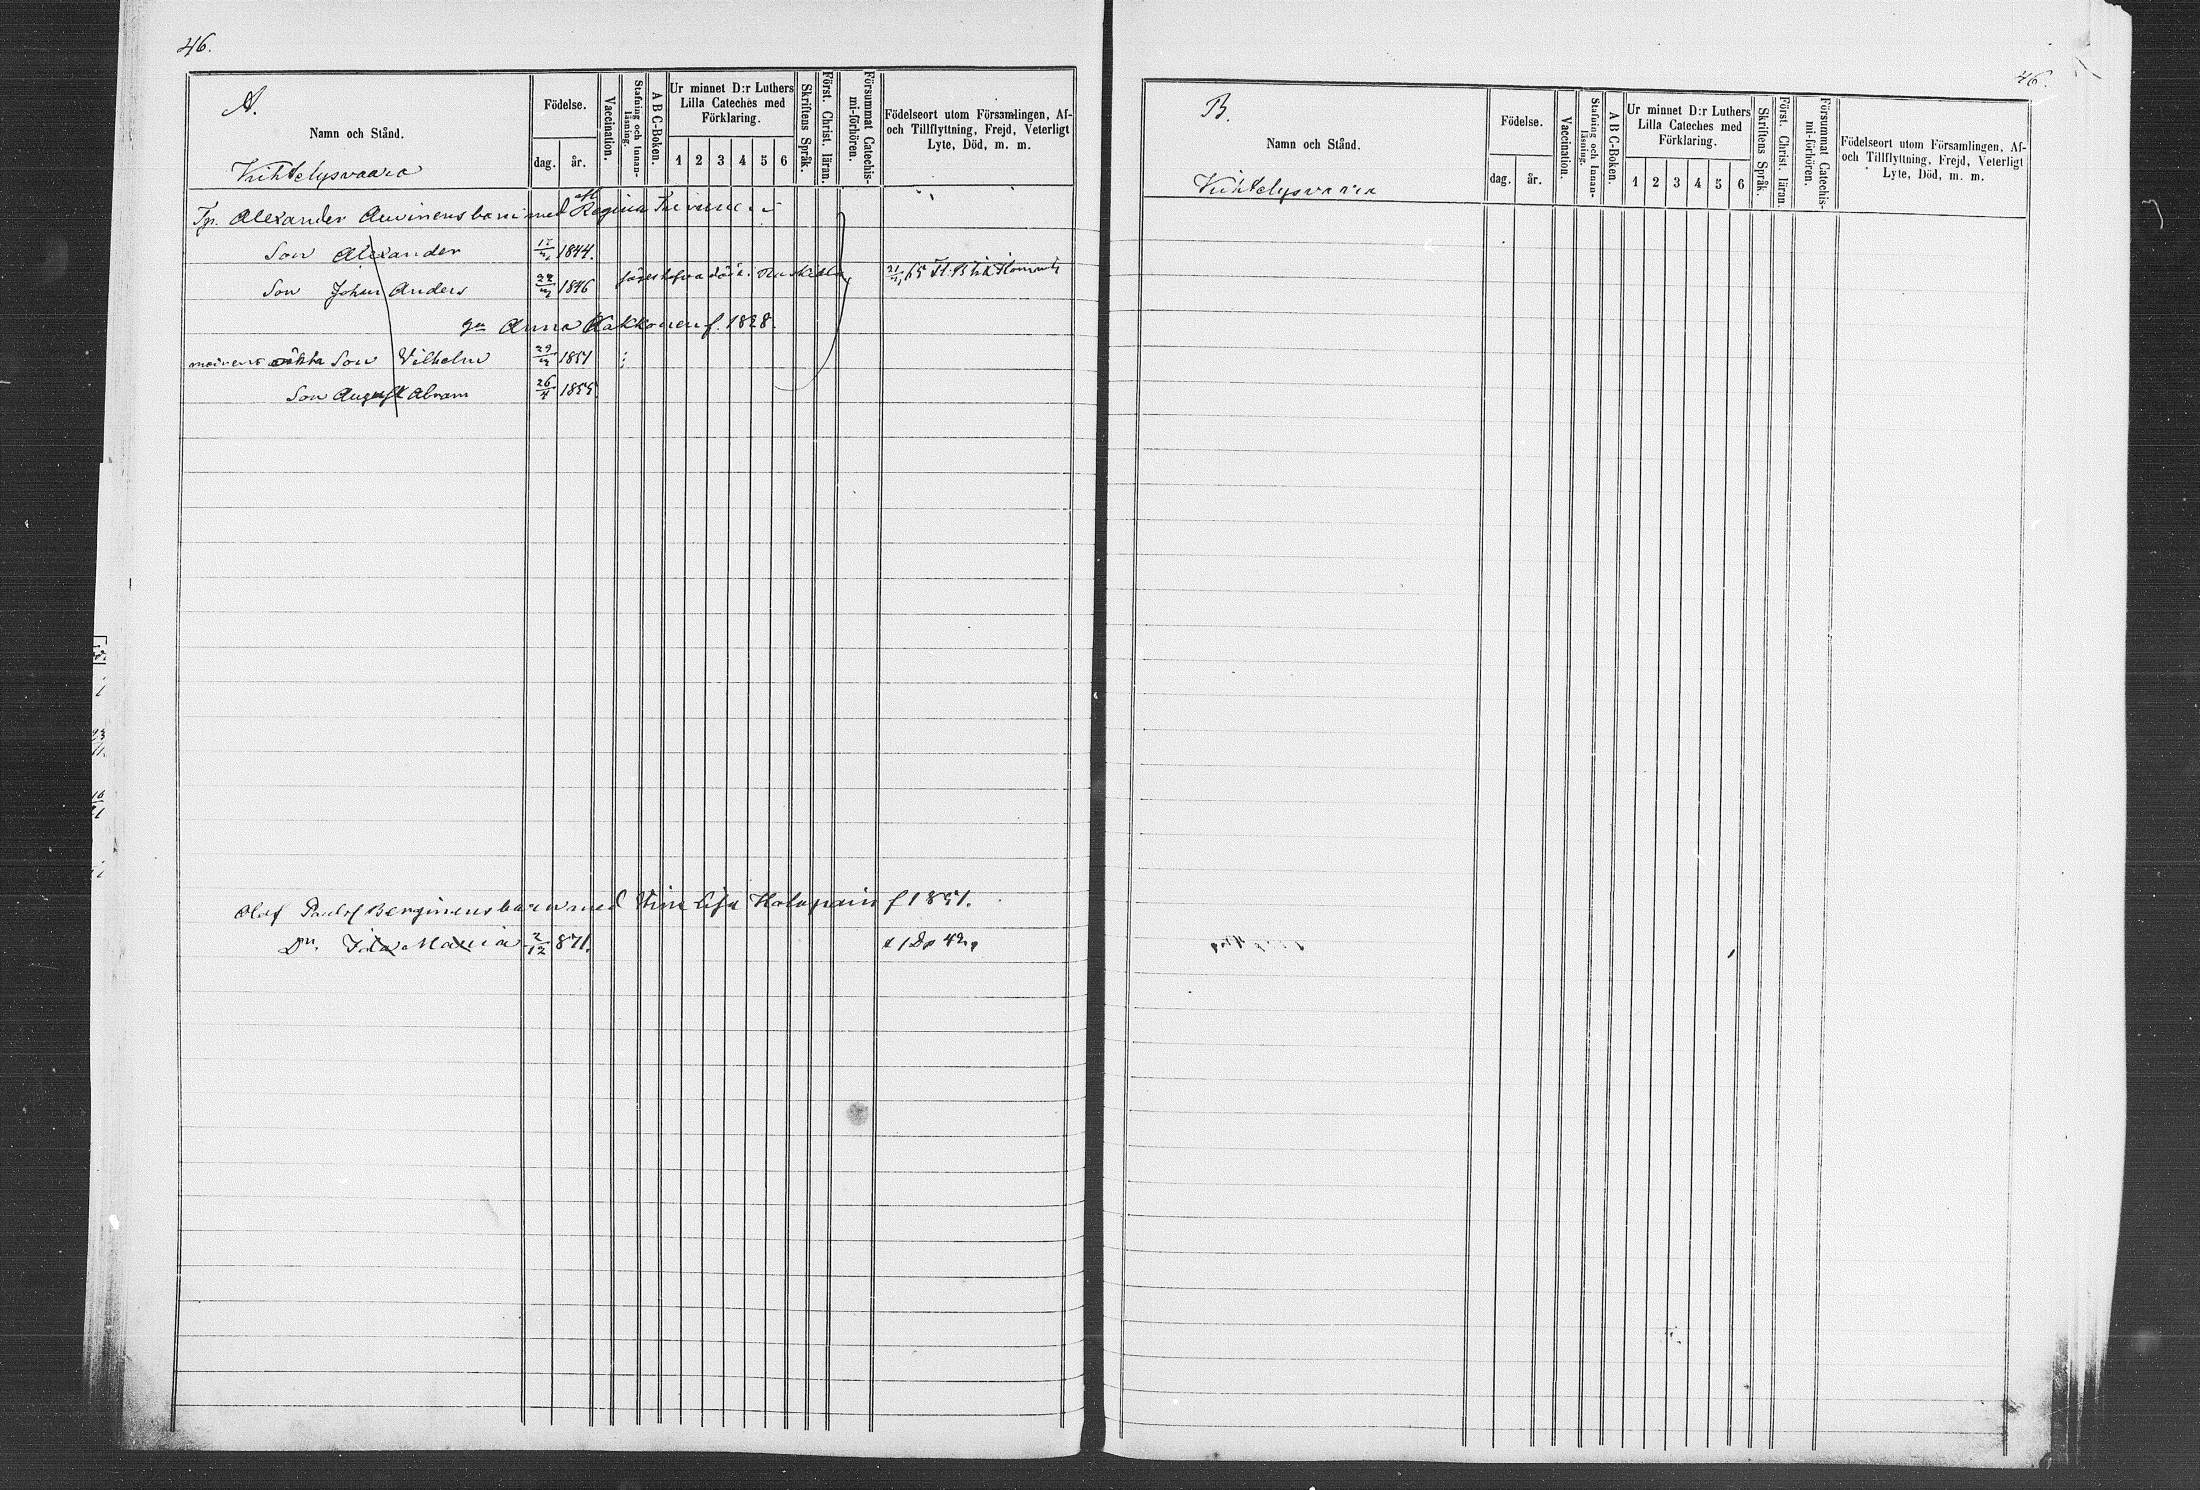 46.
A.
Namn och Stånd.
Födelse.
dag. år.
Vaccination.
Stafning och Innan-
läsning.
A B C-Boken.
Ur minnet D:r Luthers
Lilla Cateches med
Förklaring.
1 2 3 4 5 6
Skriftens Språk.
Först. Christ. läran.
Försummat Catechis-
mi-förhören.
Födelseort utom Församlingen, Af-
och Tillflyttning, Frejd, Veterligt
Lyte, Död, m. m.
Kuhtelysvaara
Tp. Alexander Auvinens barn med Regina
Son Alexander 1844.
Son Johan Anders 1846
Anna Kakkonen f. 1828.
Son Vilhelm 29 1851
Son August Abram 26/4 1855
Olof Paulof Berginens barn med Lisa f 1851.
Dr. Ida Maria 2/12 871.
46.
B.
Namn och Stånd.
Födelse.
dag. år.
Vaccination.
Stafning och Innan-
läsning.
A B C-Boken.
Ur minnet D:r Luthers
Lilla Cateches med
Förklaring.
1 2 3 4 5 6
Skriftens Språk.
Först. Christ. läran.
Försummat Catechis-
mi-förhören.
Födelseort utom Församlingen, Af-
och Tillflyttning, Frejd, Veterligt
Lyte, Död, m. m.
Kuhtelysvaara